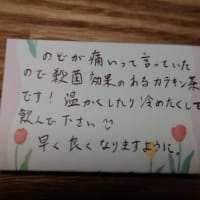 のどが痛いって言っていた
ので殺菌効果のあるカテキン茶
です！温かくしたり冷めたくして
飲んで下さい
早く良くなりますように。